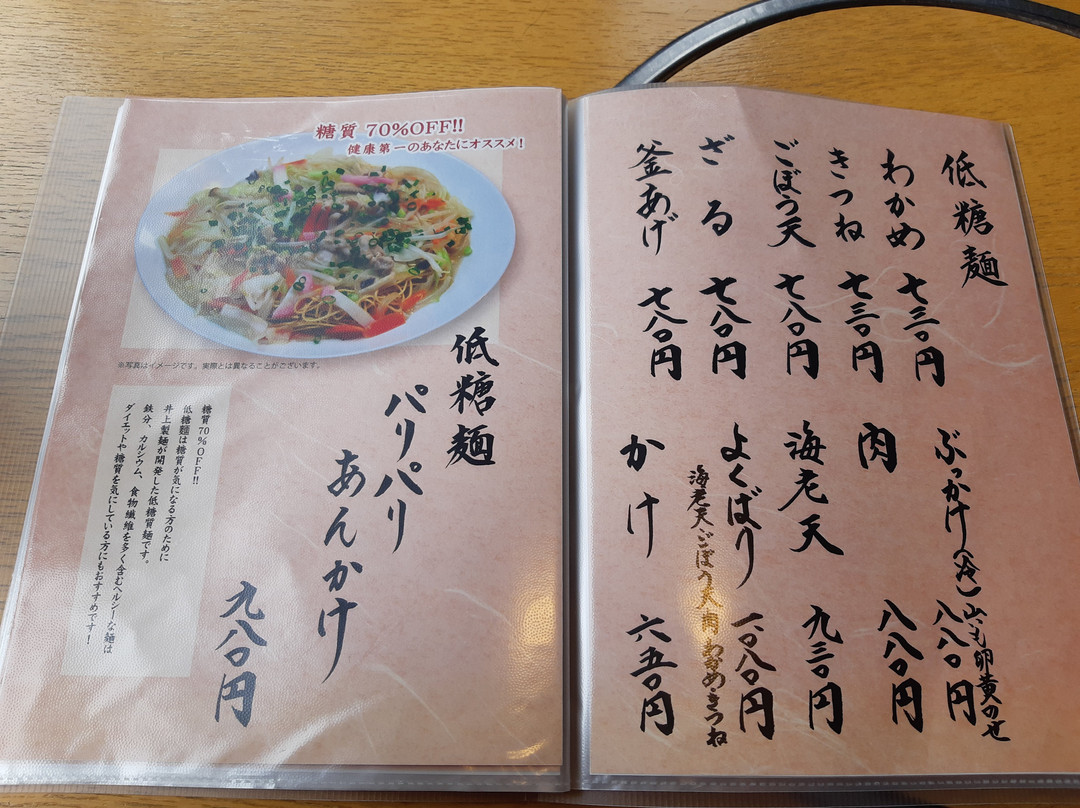 糖質 70%OFF!!
健康第一のあなたにオススメ!
※写真はイメージです。実際とは異なることがございます。
低糖麺
パリパリ
あんかけ
九八〇円
糖質70%OFF!!
低糖麺は糖質が気になる方のために
井上製麺が開発した低糖質麺です。
鉄分、カルシウム、食物繊維を多く含むヘルシーな麺は
ダイエットや糖質を気にしている方にもおすすめです!
低糖麺
わかめ 七三〇円
きつね 七三〇円
ごぼう天 七八〇円
ざる 七八〇円
釜あげ 七八〇円
ぶっかけ(冷) 八八〇円
山いも卵黄のせ
肉 八八〇円
海老天 九三〇円
よくばり 一〇八〇円
海老天・ごぼう天・肉・わかめ・きつね
かけ 六五〇円